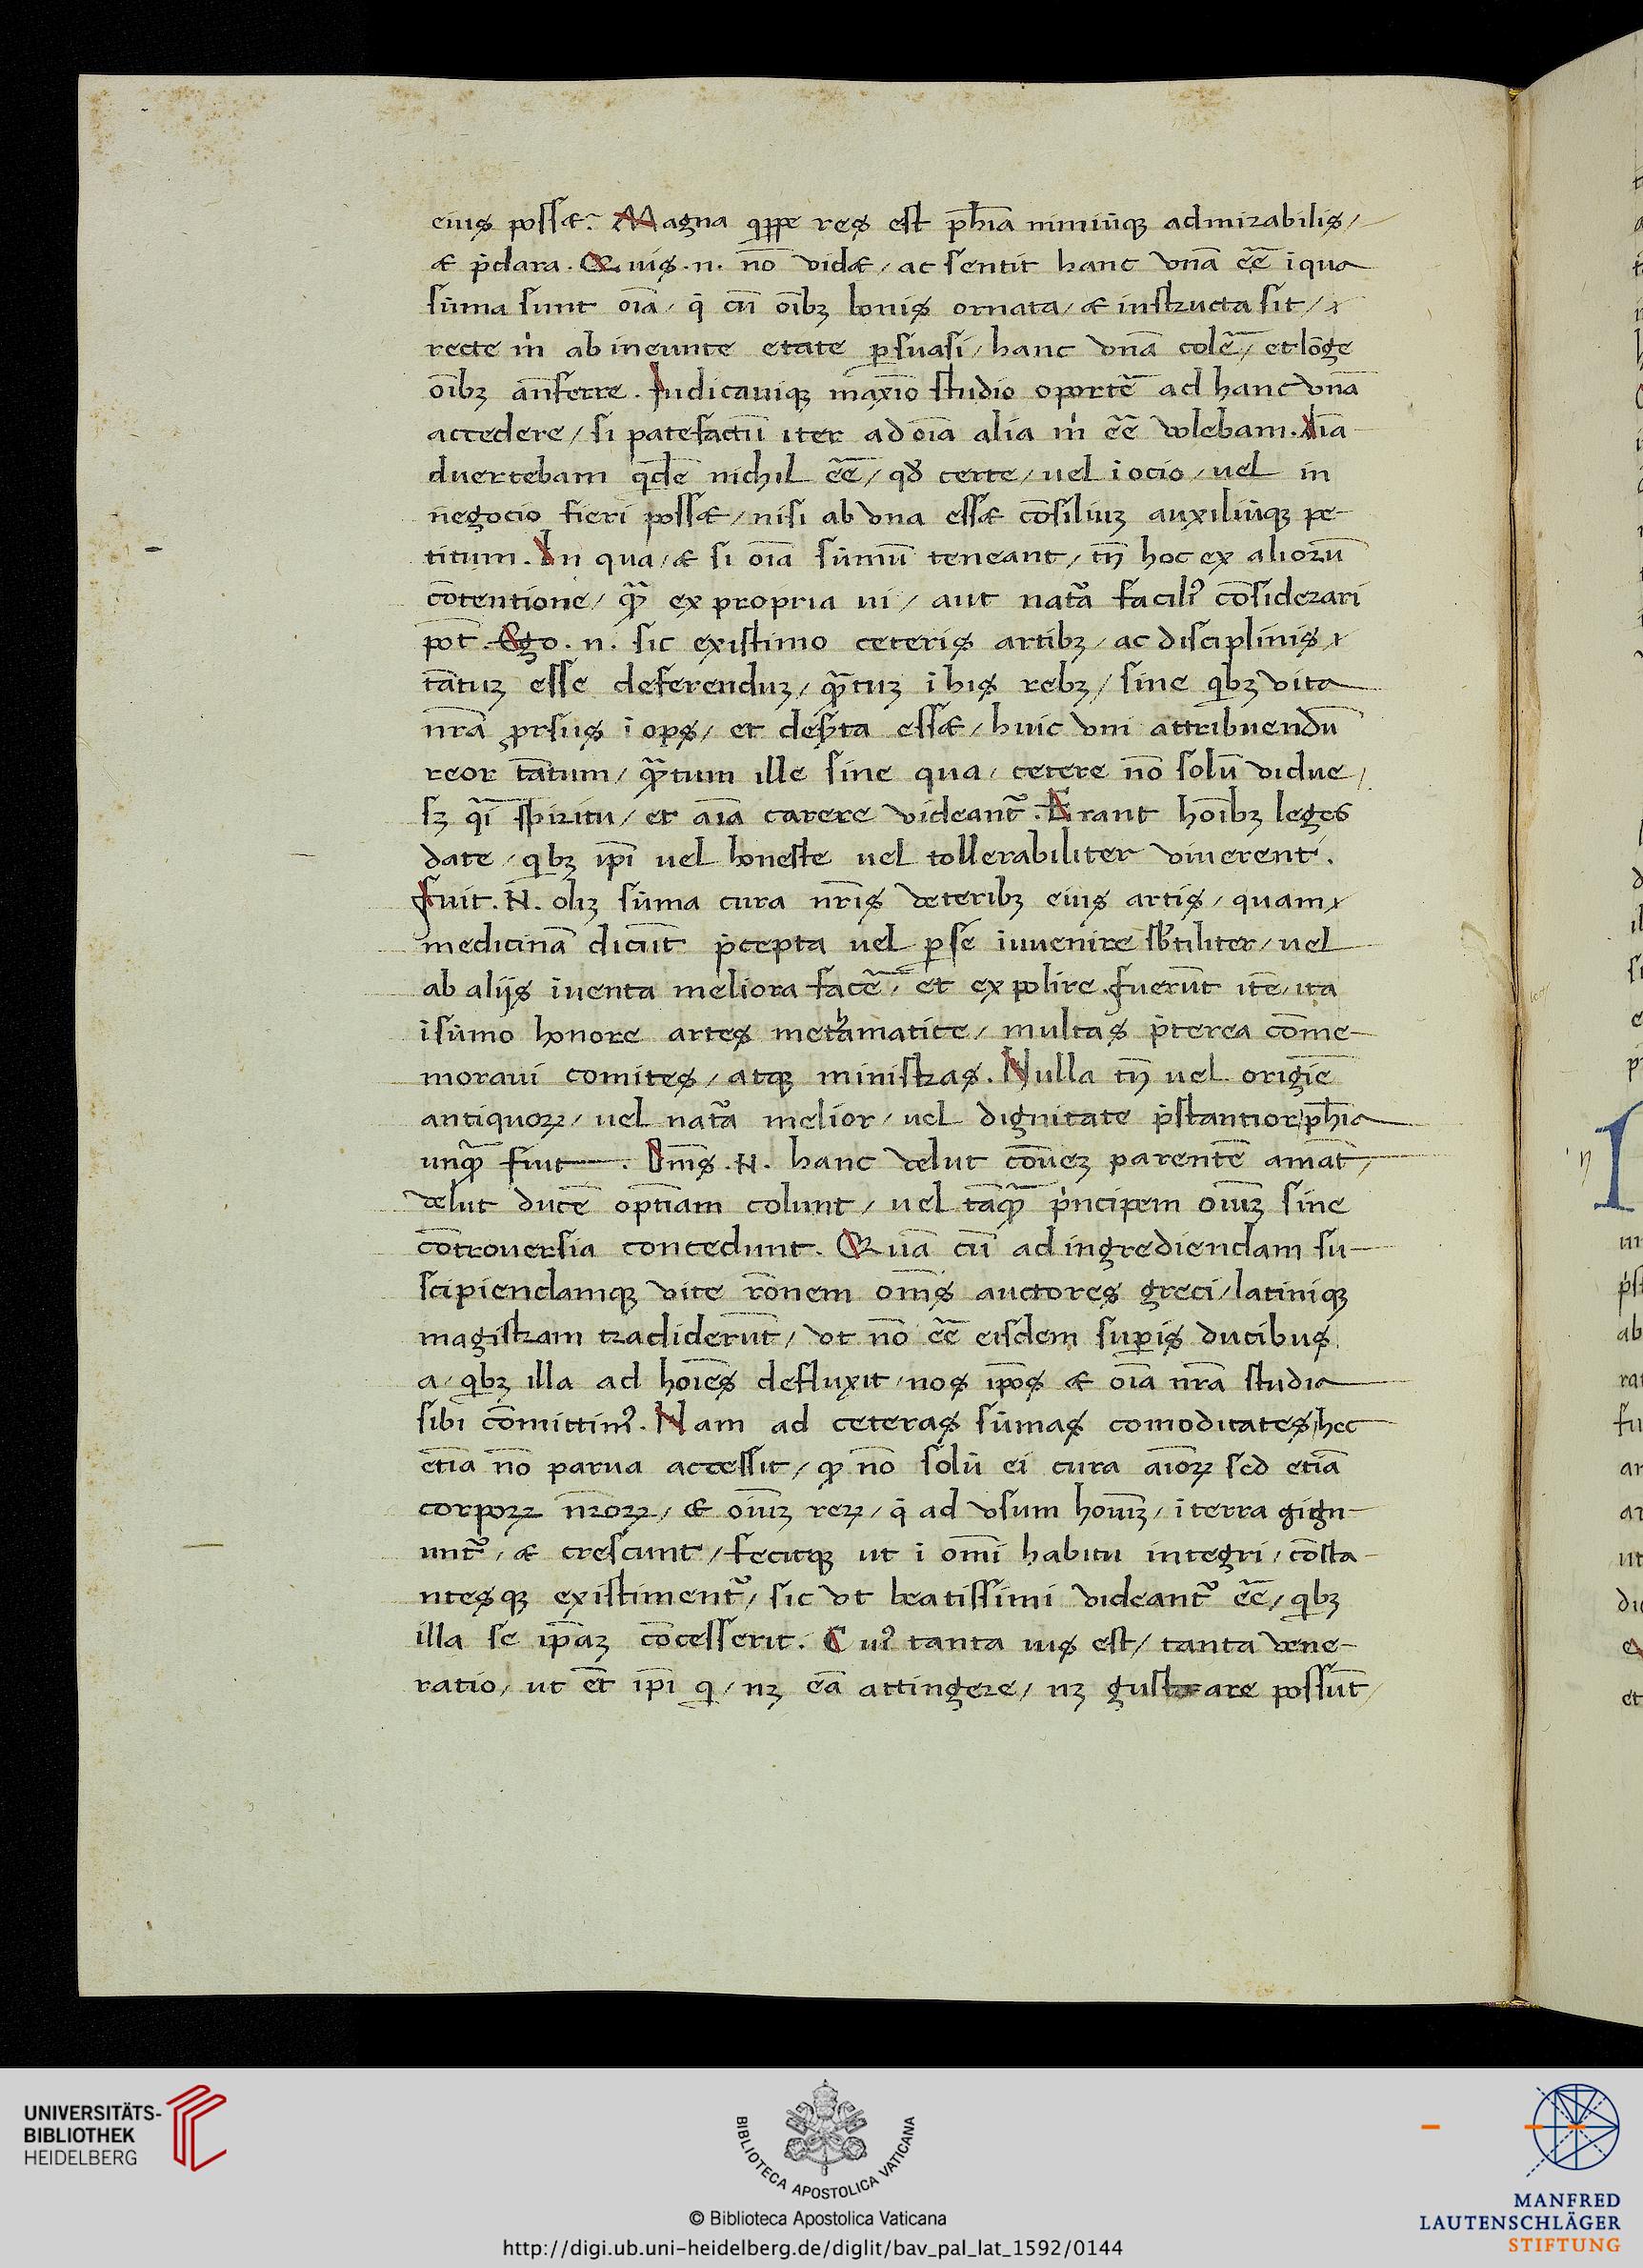 eius posset? Magna q̄ppe res est ph̄ia nimiūq; admirabilis/
et p̄clara. Quis .n. nō videt/ ac sentit hanc vnā eē̄ i qua
sūma sunt oīa/ q̄ cū oībꝫ bonis ornata/ et instructa sit/
recte m̄ ab ineunte etate psuasi/ hanc vnā colē/ et lōge
oībꝫ an̄ferre. Iudicauiq; maxīo studio oportē ad hanc vnā
accedere/ si patefactū iter ad oīa alia m̄ eē̄ volebam. Aīa
duertebam qd̄e nichil eē̄/ qđ certe/ uel i ocio/ uel in
negocio fieri posset/ nisi ab vna esset cōsiliuꝫ auxiliūq; pe-
titum. In qua/ et si oīa sūmū teneant/ tn̄ hoc ex aliorū
cōtentione/ q̄ ex propria ui/ aut natā facilī cōsiderari
pōt. Ego .n. sic existimo ceteris artibꝫ/ ac disciplinis
tātuꝫ esse deferenduꝫ/ q̄tuꝫ i his rebꝫ/ sine qbꝫ vita
nr̄a prsus i ops/ et deserta esset/ huic vni attribuendū
reor tātum/ q̄tum ille sine qua/ cetere nō solū vidue/
sꝫ q̄i spiritu/ et aīa carere videant̄. Erant hoībꝫ leges
date/ qbꝫ ip̄i uel honeste uel tollerabiliter viuerent.
Fuit .N. oliꝫ sūma cura nr̄is veteribꝫ eius artis/ quam
medicinā dicūt p̄cepta uel p se iuuenire sb̄tiliter/ uel
ab alijs iuenta meliora facē/ et expolire. Fuerūt itē/ ita
i sūmo honore artes methamatice/ multas p̄terea cōme-
moraui comites/ atq; ministras. Nulla tn̄ uel origīe
antiquoꝝ/ uel natā melior/ uel dignitate p̄stantior/ ph̄ia
unq̄ fuit. Om̄s .N. hanc velut cōueꝫ parentē amāt/
velut ducē optīam colunt/ uel tāq̄ p̄ncipem oīuꝫ sine
cōtrouersia concedunt. Quā cū ad ingrediendam su-
scipiendamq; vite rōnem om̄s auctores greci/ latiniq;
magistram tradiderūt/ vt nō eē̄ eisdem supis ducibus
a/ qbꝫ illa ad hoīes defluxit/ nos ip̄os et oīa nr̄a studia
sibi cōmittim9. Nam ad ceteras sūmas comoditates/ hec
etīa nō parua accessit/ q̄ nō solū ei cura aīoꝝ sed etiā
corpoꝝ nr̄oꝝ/ et oīuꝫ reꝝ/ q̄ ad vsum hoīuꝫ/ i terra gign-
unt̄/ et crescunt/ fecitq; ut i om̄i habitu integri/ cōsta-
ntesq; existiment̄/ sic vt beatissimi videant̄ eē̄/ qbꝫ
illa se ip̄aꝫ cōcesserit. Cui9 tanta uis est/ tanta vene-
ratio/ ut et̄ ip̄i q/ nꝫ eā attingere/ nꝫ gustare possūt/
UNIVERSITÄTS-
BIBLIOTHEK
HEIDELBERG
BIBLIOTECA APOSTOLICA VATICANA
© Biblioteca Apostolica Vaticana
http://digi.ub.uni-heidelberg.de/diglit/bav_pal_lat_1592/0144
MANFRED
LAUTENSCHLÄGER
STIFTUNG